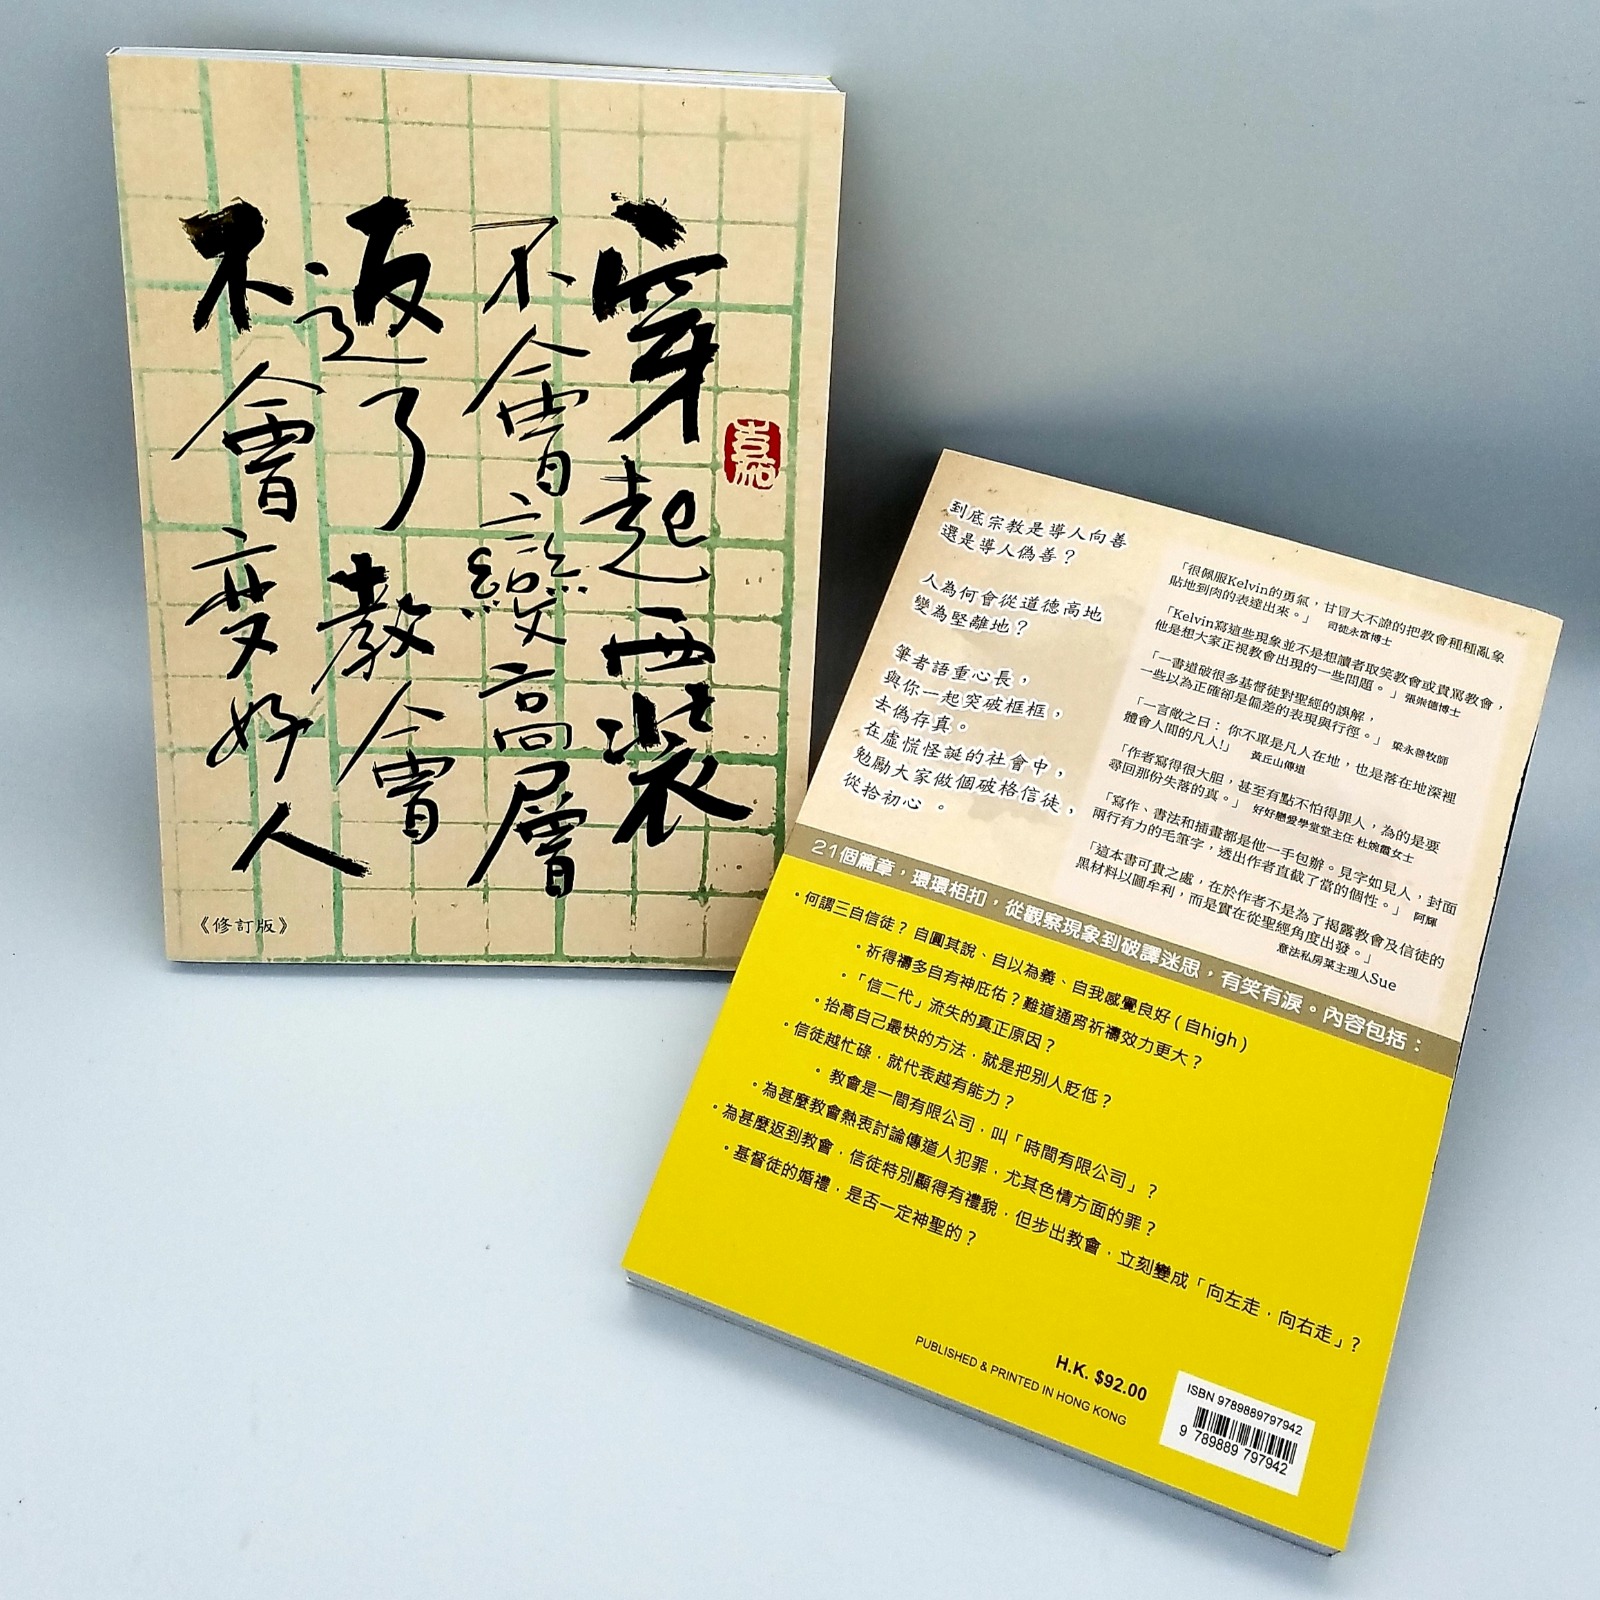 穿起西裝
不會變高層
返了教會
不會变好人
嘉
《修訂版》
到底宗教是導人向善
還是導人偽善？
人為何會從道德高地
變為堅離地？
筆者語重心長，
與你一起突破框框，
去偽存真。
在虛慌怪誕的社會中，
勉勵大家做個破格信徒，
從拾初心。
「很佩服Kelvin的勇氣，甘冒大不諱的把教會種種亂象
貼地到肉的表達出來。」 司徒永富博士
「Kelvin寫這些現象並不是想讀者取笑教會或責罵教會，
他是想大家正視教會出現的一些問題。」張崇德博士
「一書道破很多基督徒對聖經的誤解，
一些以為正確卻是偏差的表現與行徑。」 梁永善牧師
「一言敵之曰：你不單是凡人在地，也是落在地深裡
體會人間的凡人!」 黃丘山傳道
「作者寫得很大胆，甚至有點不怕得罪人，為的是要
尋回那份失落的真。」 好好戀愛學堂堂主任 杜婉霞女士
「寫作、書法和插畫都是他一手包辦。見字如見人，封面
兩行有力的毛筆字，透出作者直截了當的個性。」 阿輝
「這本書可貴之處，在於作者不是為了揭露教會及信徒的
黑材料以圖牟利，而是實在從聖經角度出發。」
意法私房菜主理人Sue
21個篇章，環環相扣，從觀察現象到破譯迷思，有笑有淚。內容包括：
•何謂三自信徒？自圓其說、自以為義、自我感覺良好（自high）
•祈得禱多自有神庇佑？難道通宵祈禱效力更大？
•「信二代」流失的真正原因？
•抬高自己最快的方法，就是把別人貶低？
•信徒越忙碌，就代表越有能力？
•教會是一間有限公司，叫「時間有限公司」？
•為甚麼教會熱衷討論傳道人犯罪，尤其色情方面的罪？
•為甚麼返到教會，信徒特別顯得有禮貌，但步出教會，立刻變成「向左走，向右走」？
•基督徒的婚禮，是否一定神聖的？
H.K. $92.00
PUBLISHED & PRINTED IN HONG KONG
ISBN 9789889797942
9 789889 797942